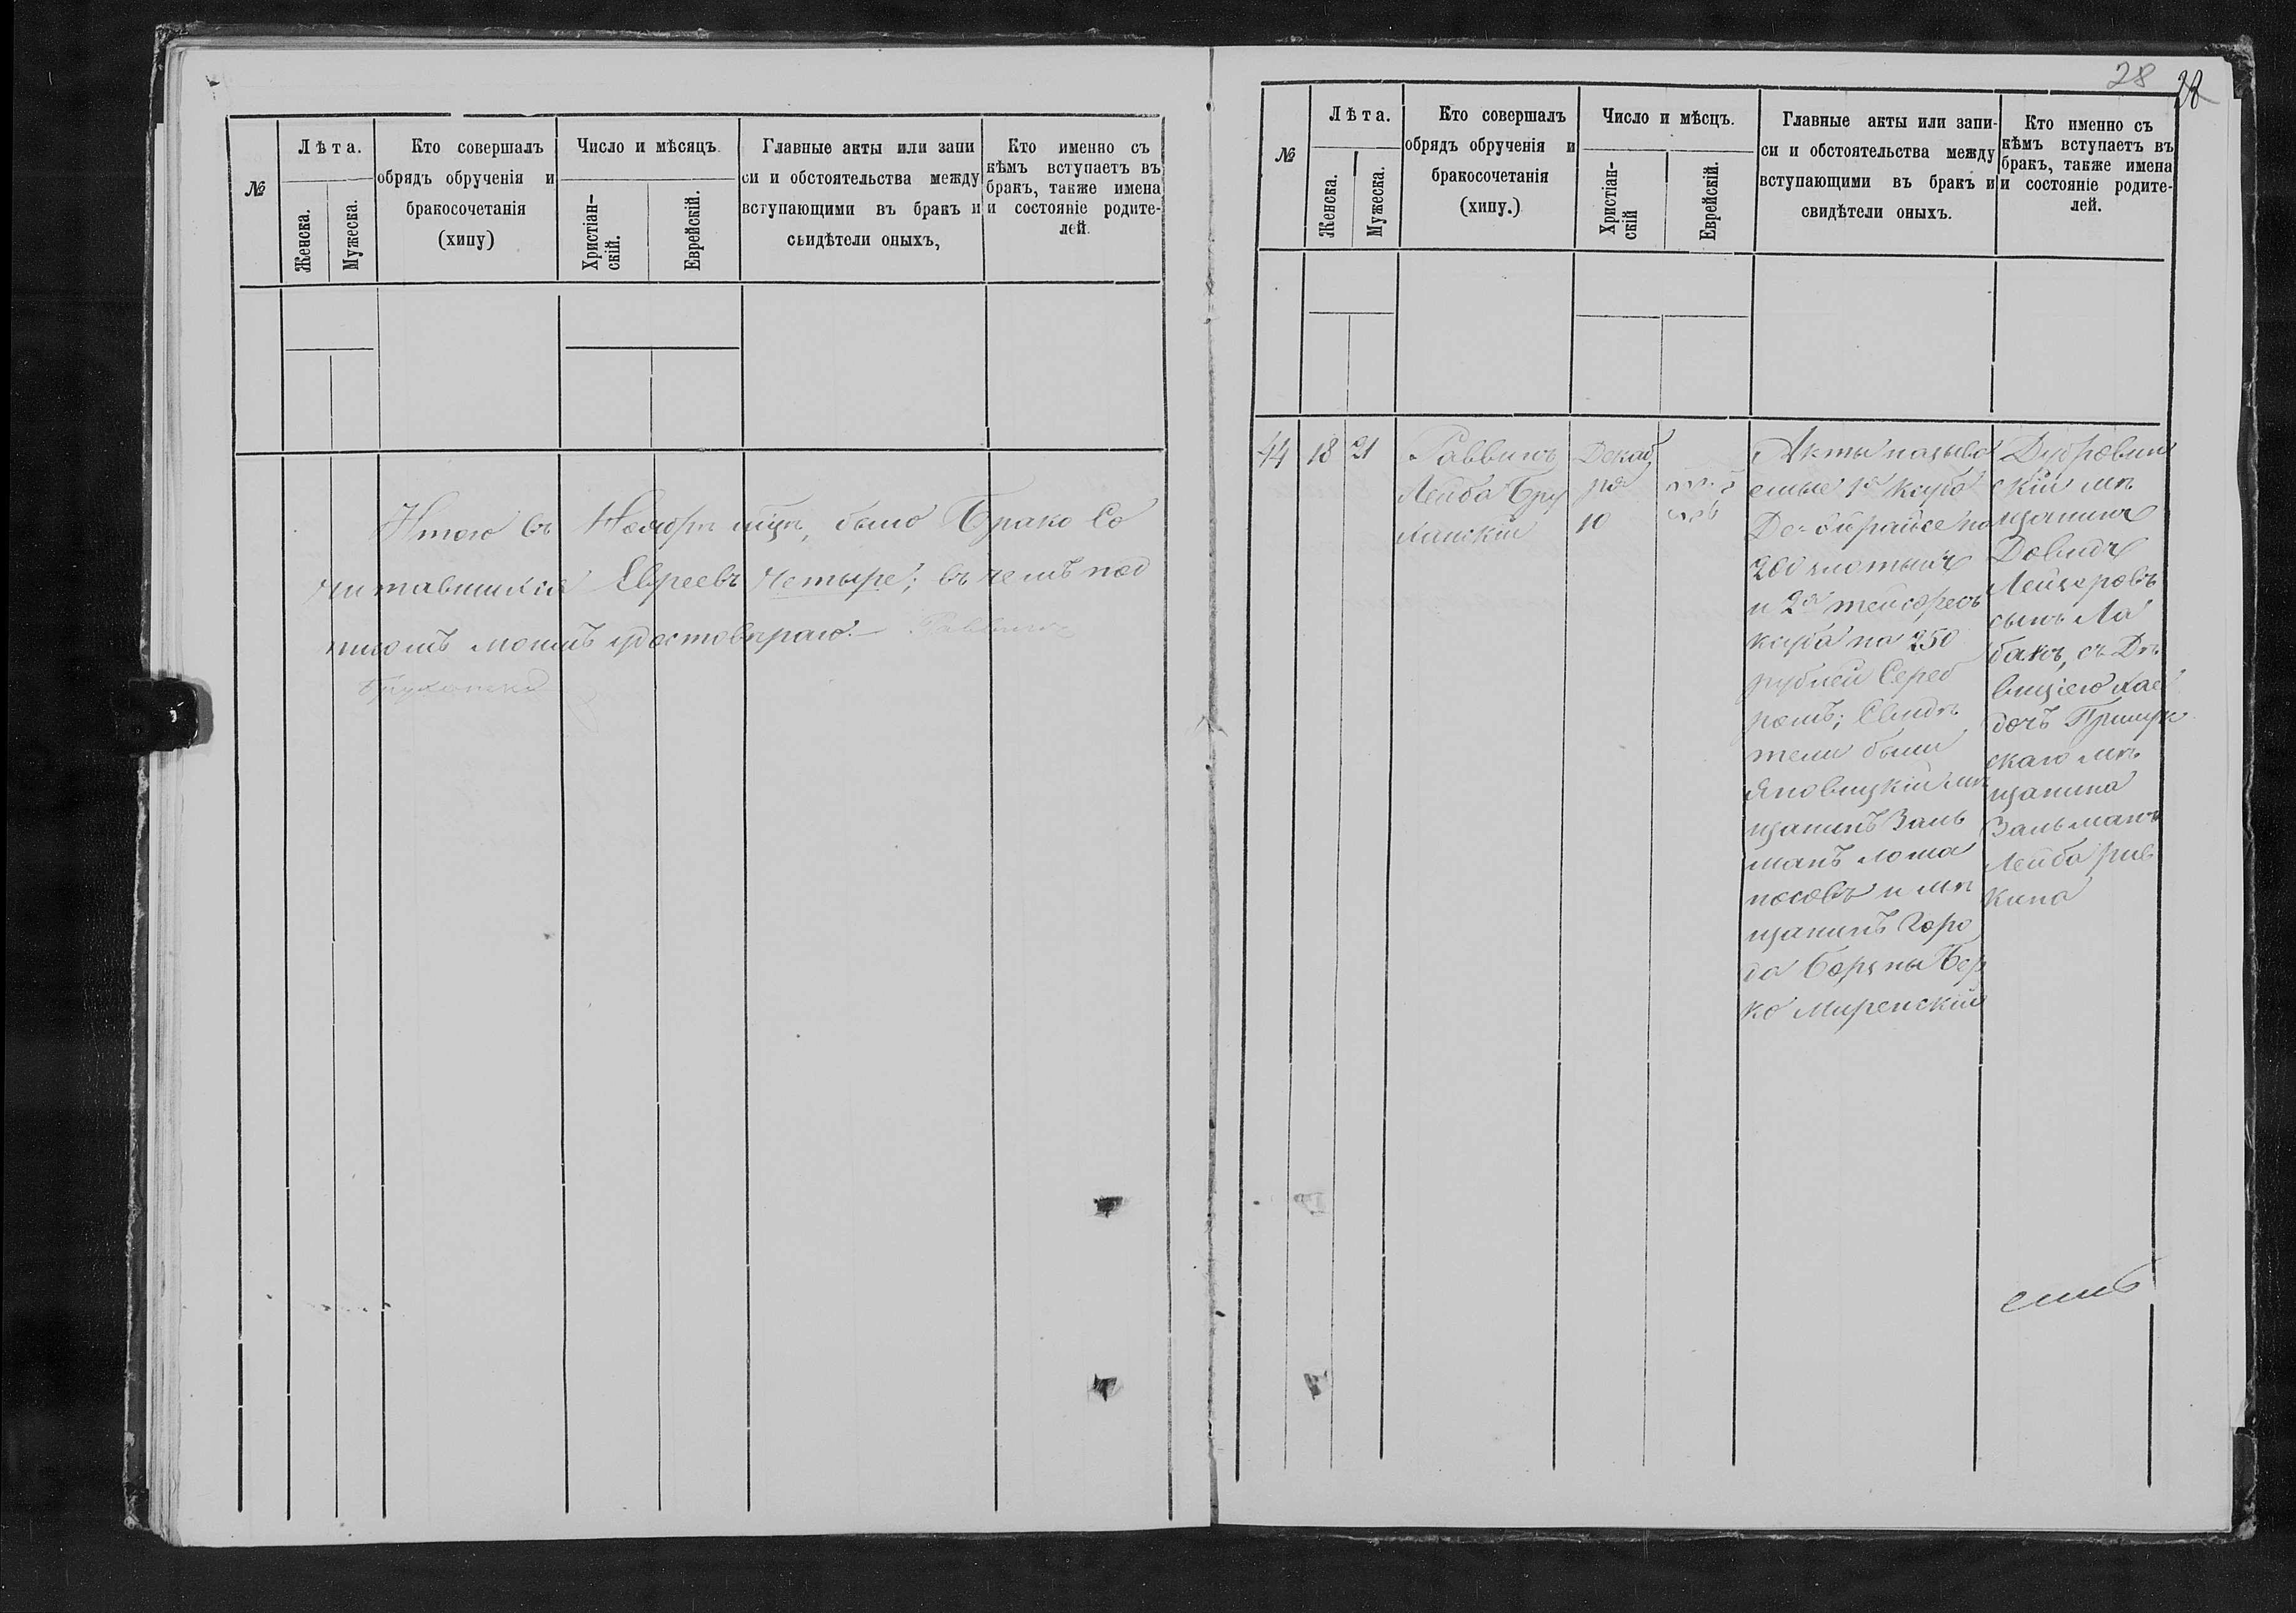 №
Лѣта.
Женска.
Мужеска.
Кто совершалъ
обрядъ обрученія и
бракосочетанія
(хипу)
Число и мѣсяцъ.
Христіан-
скій.
Еврейскій.
Главные акты или запи
си и обстоятельства между
вступающими въ бракъ и
свидѣтели оныхъ,
Кто именно съ
кѣмъ вступаетъ въ
бракъ, также имена
и состояніе родите-
лей.
Итого въ Ноябрѣ мцѣ, было Брако Со
читавшихся Евреевъ Четыре; въ чемъ под
писомъ моимъ удостовѣраю. Раввинъ
28
№
Лѣта.
Женска.
Мужеска.
Кто совершалъ
обрядъ обрученія и
бракосочетанія
(хипу.)
Число и мѣсцъ.
Христіан-
скій
Еврейскій.
Главные акты или запи-
си и обстоятельства между
вступающими въ бракъ и
свидѣтели оныхъ.
Кто именно съ
кѣмъ вступаетъ въ
бракъ, также имена
и состояніе родите-
лей.
44
18
21
Раввинъ
Лейба Бру
Декаб
ря
10
Акты называ
емые 1й
на
200 злотыхъ
и 2й
на 250
рублей Сереб
ромъ; Свидѣ
тели были
Яновицкій мѣ
щанинъ Заль
манъ
и мѣ
щанинъ Горо
да Бер
ко Миренскій
Дубровин
скій мѣ
щанинъ
Довидъ
Лейзеровъ
сынъ Ла
бакъ, съ Дѣ
вицею Хае
дочъ
скаго мѣ
щанина
Зальмана
Лейба Рив
кина